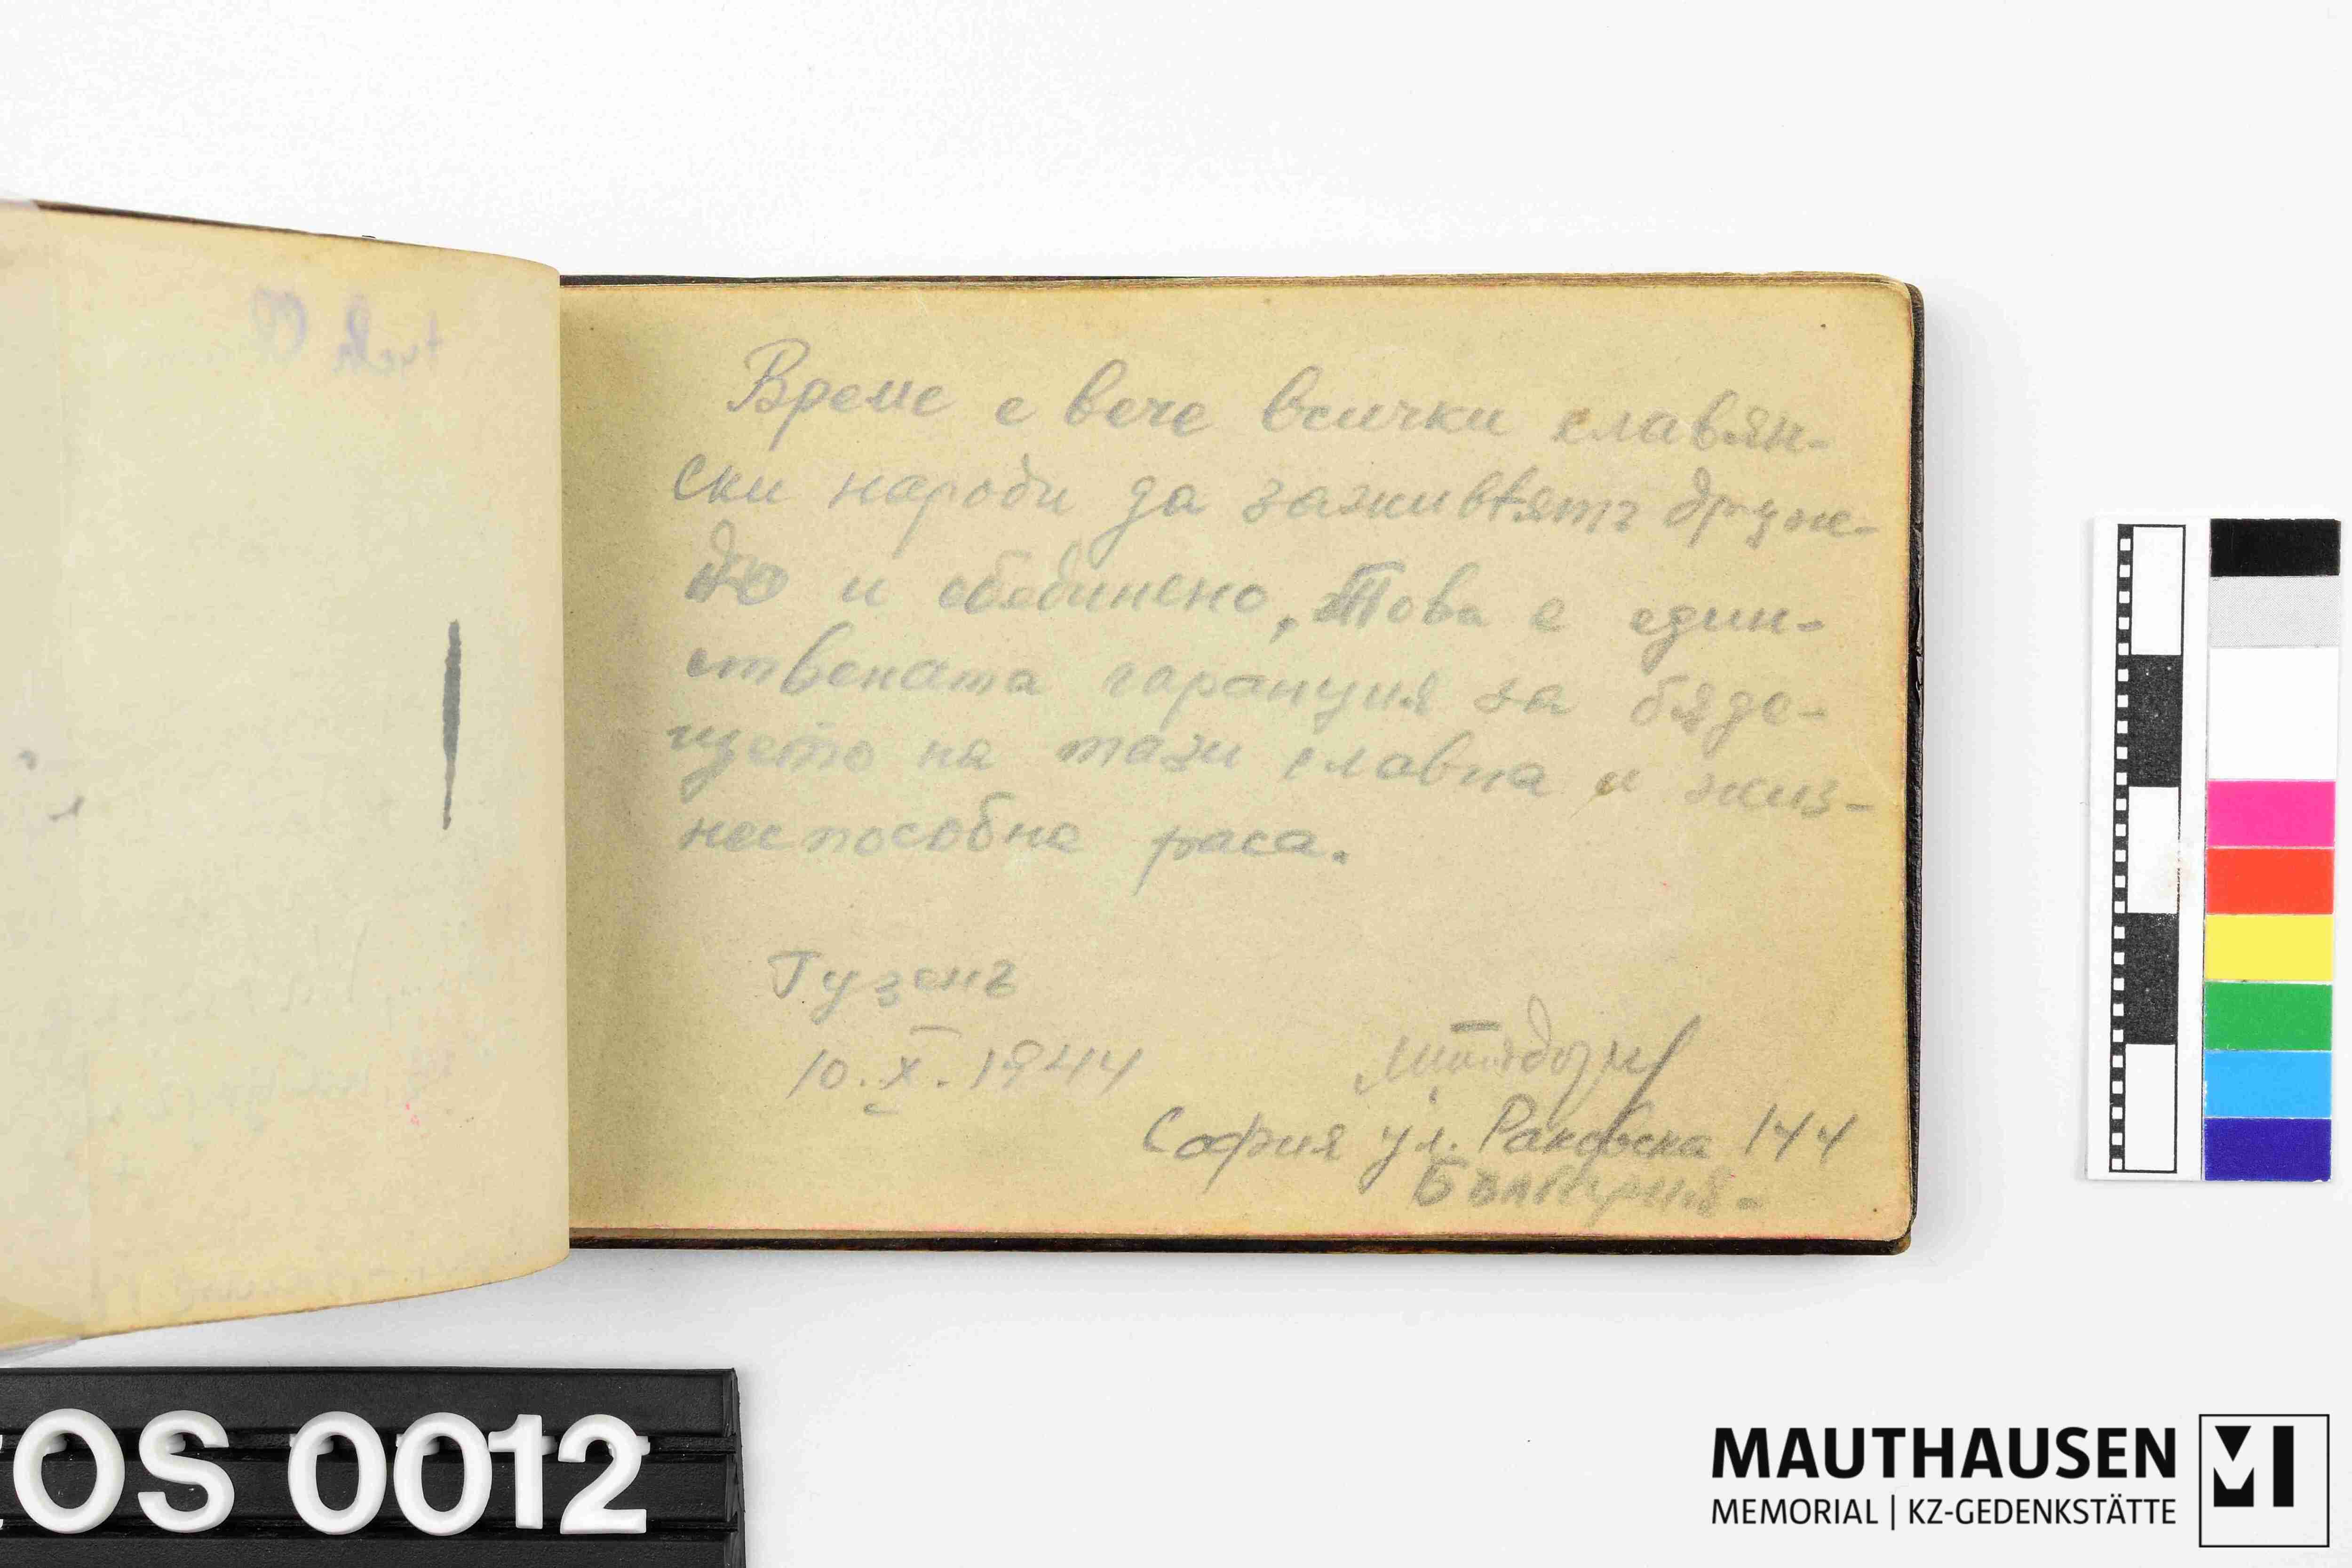 Време е вече всички славян-
ски народи да заживѣятъ друже-
но и обединено, Това е един-
ствената гаранция за бѫде-
щето на тази славна и жиз-
неспособна раса.
Гузенъ
10.X.1944
София ул. Раковска 144
България.
OS 0012
MAUTHAUSEN
MEMORIAL | KZ-GEDENKSTÄTTE